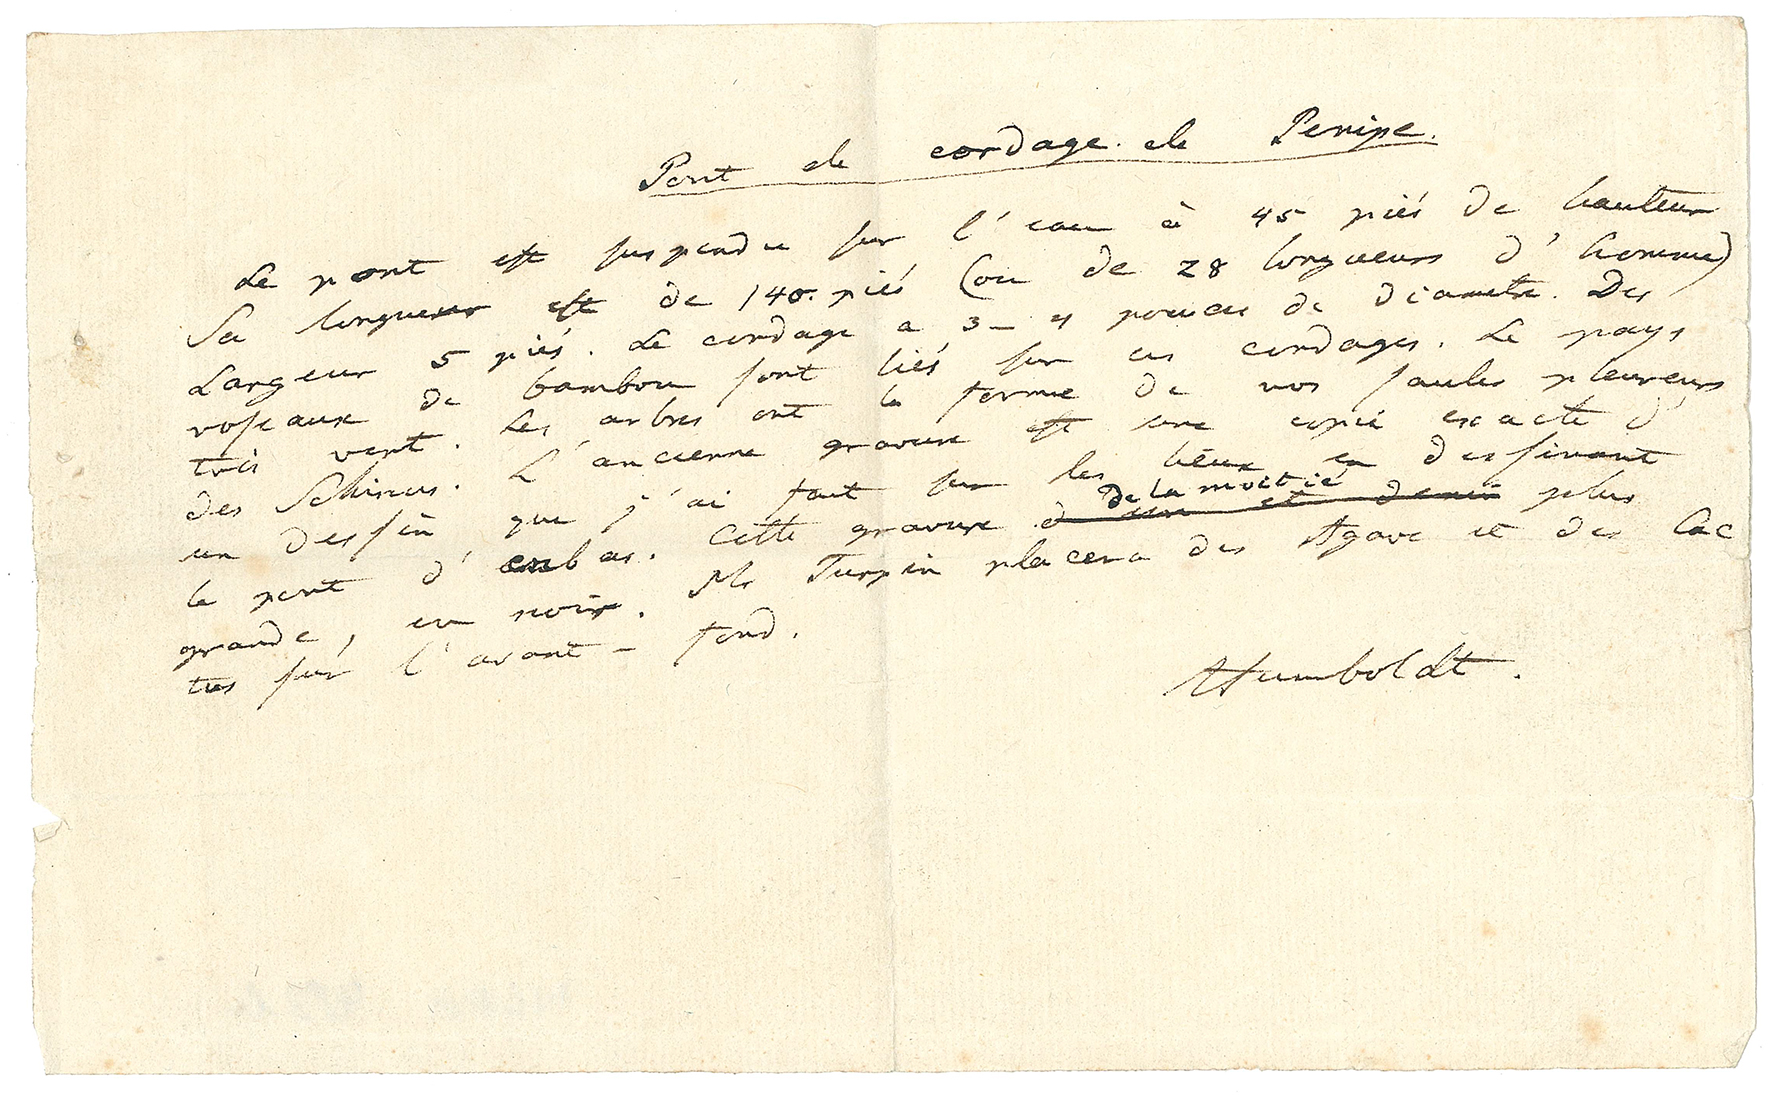 Pont de cordage de Penipe.
Le pont est suspendu sur l'eau à 45 piés de hauteur
Sa longueur est de 140. piés (ou de 28 longueurs d'homme)
Largeur 5 piés. Le cordage a 3–4 pouces de diametre. Des
roseaux de bambou sont liés sur ces cordages. Le pays
très vert. Les arbres ont la forme de nos saules pleureurs
des Schinus. L'ancienne gravure est une copie exacte d'
un dessin que j'ai fait sur les lieux en dessinant
de la moitié
le pont d'enbas. Cette gravure d'une et demie plus
grande, en noir. Mr Turpin placera des Agave et des Cac
tus sur l'avant-fond.
Humboldt.